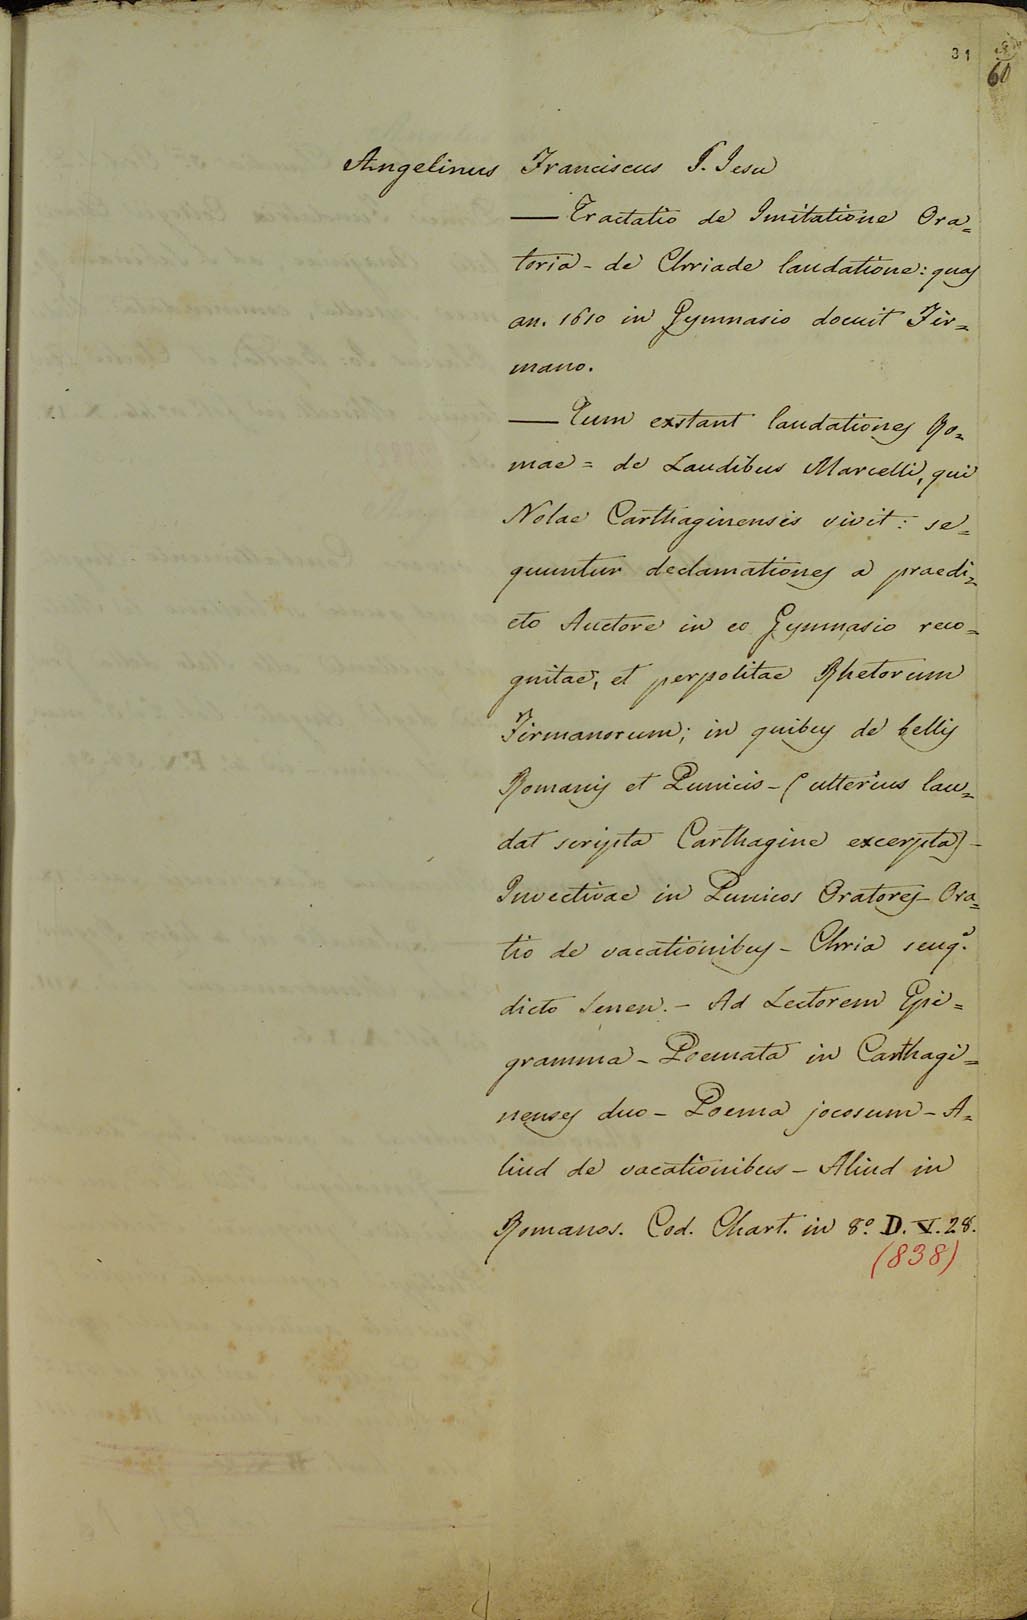 31
60
Angelinus Franciscus S. Jesu
— Tractatio de Imitatione Ora=
toria - de Chriade laudatione: quas
an. 1610 in Gymnasio docuit Fir=
mano.
— Tum exstant laudationes Ro=
mae = de Laudibus Marcelli, qui
Nolae Carthaginensis vivit: se=
quuntur declamationes a praedi=
cto Auctore in eo Gymnasio reco=
gnitae, et perpolitae Rhetorum
Firmanorum; in quibus de bellis
Romanis et Punicis - (ulterius lau=
dat scripta Carthagine excerpta) -
Invectivae in Punicos Oratores - Ora=
tio de vacationibus - Chria
dicto Senen. - Ad Lectorem Epi=
gramma - Poemata in Carthagi=
nenses duo - Poema jocosum - A=
liud de vacationibus - Aliud in
Romanos. Cod. Chart. in 8.º D. V. 28.
(838)